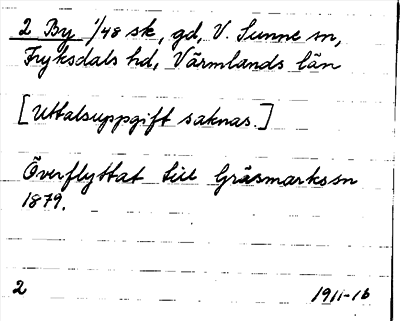 2 By 1/48 sk, gd, V. Sunne sn,
Fryksdals hd, Värmlands län
[Uttalsuppgift saknas.]
Överflyttat till Gräsmarks sn
1879.
2 1911-16